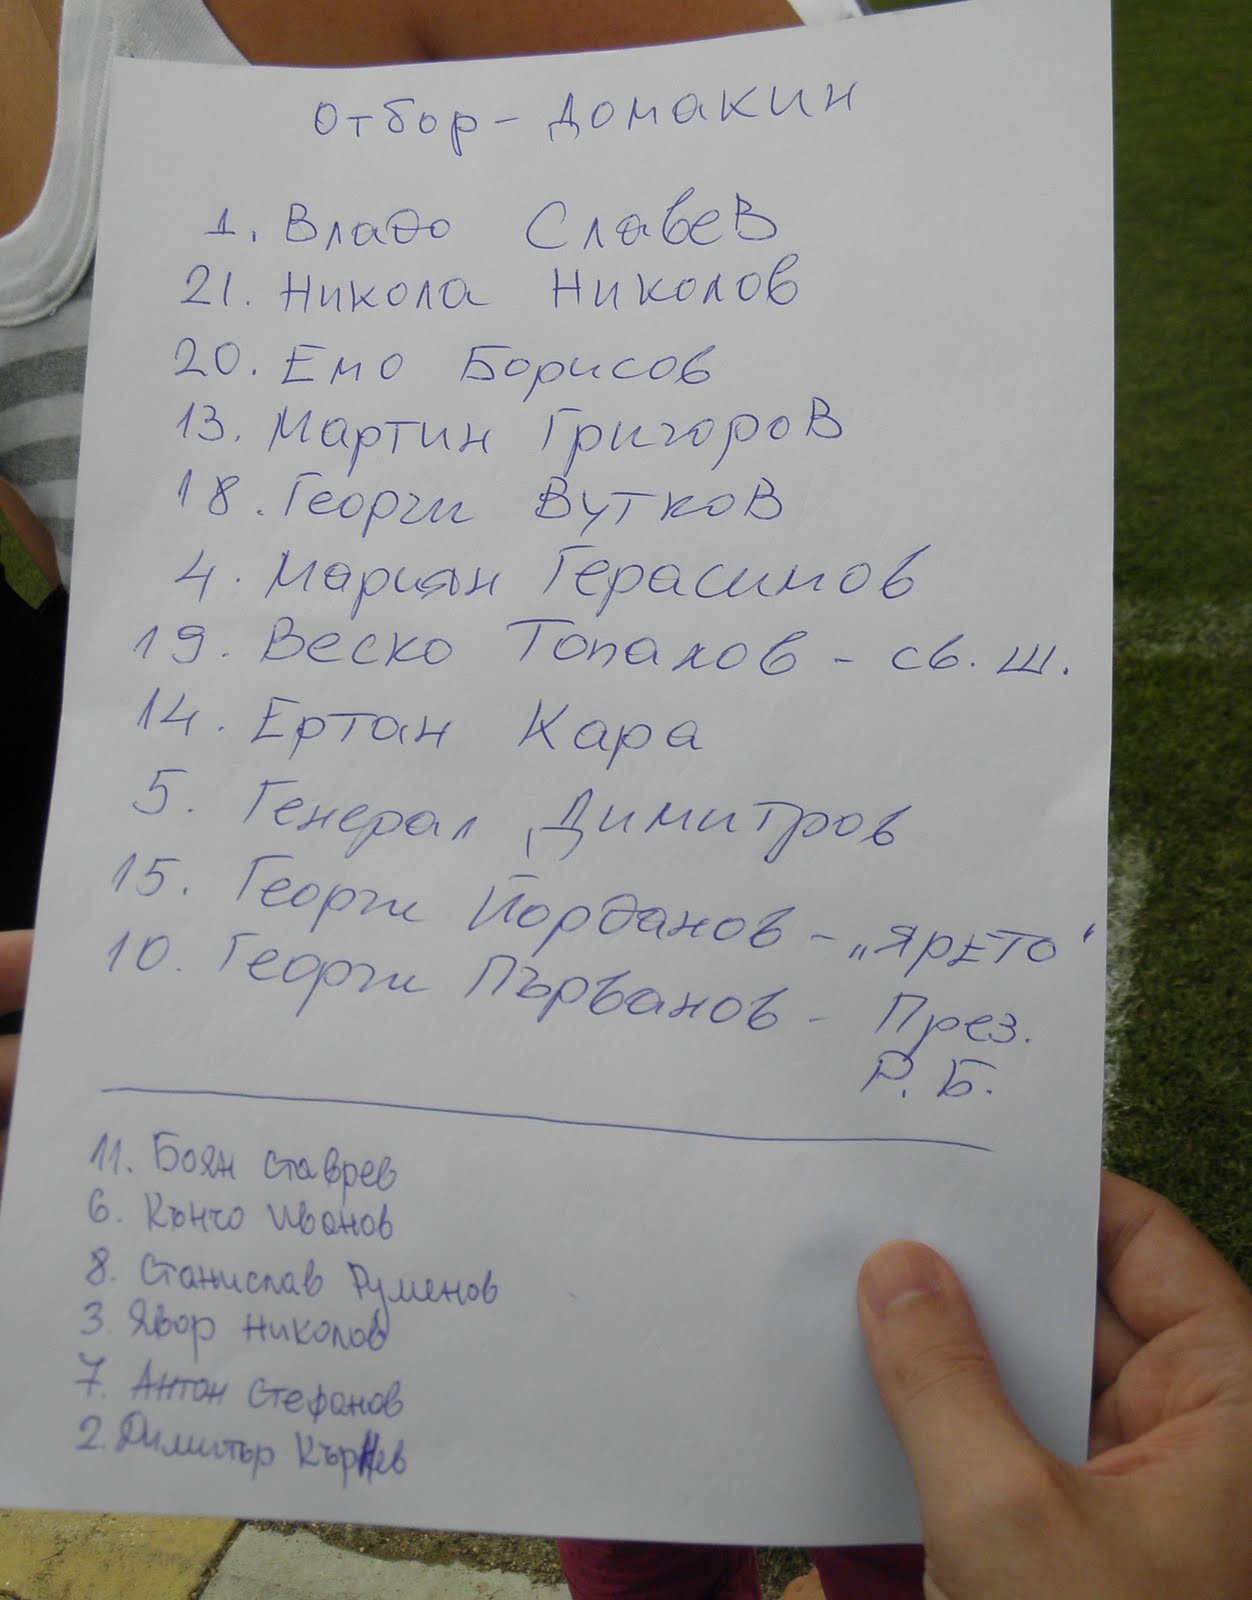 Отбор - Домакин
1. Владо Славев
21. Никола Николов
20. Емо Борисов
13. Мартин Григоров
18. Георги Вутков
4. Мариян Герасимов
19. Веско Топалов - св. ш.
14. Ертан Кара
5. Генерал Димитров
15. Георги Йорданов - „ЯРЕТО“
10. Георги Първанов - През.
Р. Б.
11. Боян Ставрев
6. Кънчо Иванов
8. Станислав Руменов
3. Явор Николов
7. Антон Стефанов
2. Димитър Кърнев